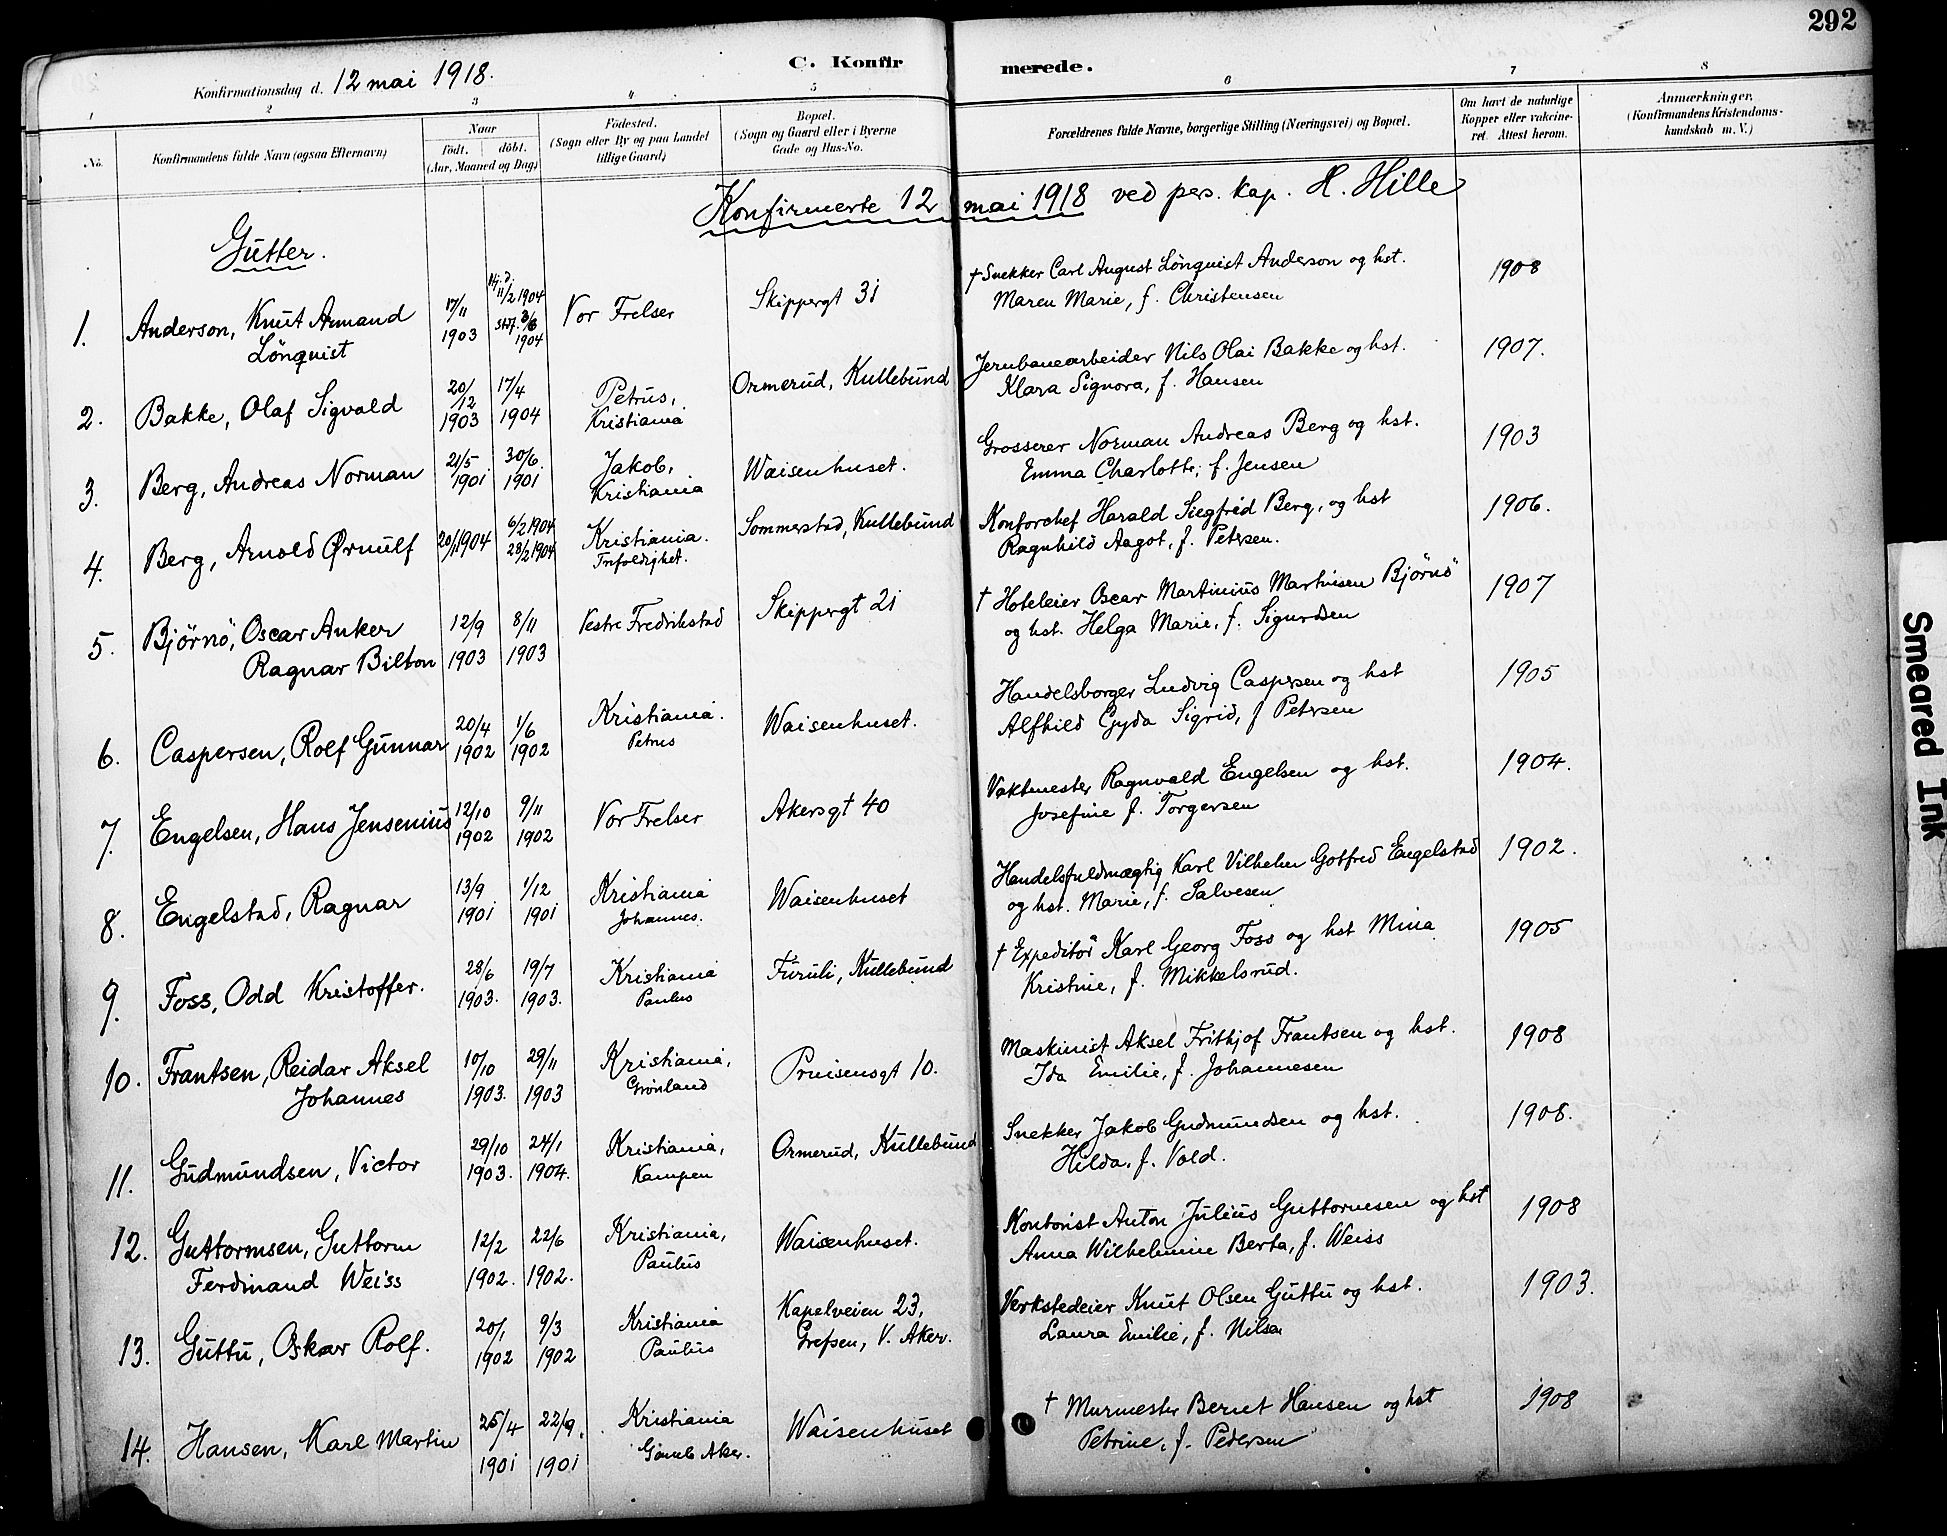 292
C. Konfirmerede.
Konfirmationsdag d. 12 mai 1918.
1 2 3 4 5 6 7 8
No.
Konfirmandens fulde Navn (ogsaa Efternavn)
Naar
født. døbt.
(Aar, Maaned og Dag)
Fødested.
(Sogn eller By og paa Landet
tillige Gaard)
Bopæl.
(Sogn og Gaard eller i Byerne
Gade og Hus-No.
Forældrenes fulde Navne, borgerlige Stilling (Næringsvei) og Bopæl.
Om havt de naturlige
Kopper eller vakcine-
ret. Attest herom.
Anmærkninger.
(Konfirmandens Kristendoms-
kundskab m. V.)
Konfirmerte 12 mai 1918 ved pers. kap. H. Hille
Gutter.
1. Anderson, Knut Armand Lönquist
17/11 1903
11/2 1904 1904
Vor Frelser
Skippergt 31
† Snekker Carl August Lönquist Anderson og hst.
Maren Marie, f. Christensen
1908
2. Bakke, Olaf Sigvald
20/12 1903
17/4 1904
Petrus,
Kristiania
Ormerud, Kullebund
Jernbanearbeider Nils Olai Bakke og hst.
Klara Signora, f. Hansen
1907.
3. Berg, Andreas Norman
21/5 1901
30/6 1901
Jakob,
Kristiania
Waisenhuset.
Grosserer Norman Andreas Berg og hst.
Emma Charlotte, f. Jensen
1903
4. Berg, Arnold Ørnulf
20/1 1904
6/2 1904
28/2 1904
Kristiania.
Trefoldighet.
Sommerstad, Kullebund
Kontorchef Harald Siegfred Berg, og hst
Ragnhild Aagot, f. Petersen.
1906.
5. Björnö, Oscar Anker
Ragnar Bilton
12/9 1903
8/11 1903
Vestre Fredrikstad
Skippergt 21
† Hoteleier Oscar Martinius Martinsen Björnö
og hst. Helga Marie, f. Sigurdsen
1907
6. Caspersen, Rolf Gunnar
20/4 1902
1/6 1902
Kristiania.
Petrus
Waisenhuset.
Handelsborger Ludvig Caspersen og hst
Alfhild Gyda Sigrid, f Petersen
1905
7. Engelsen, Hans Jensenius
12/10 1902
9/11 1902
Vor Frelser
Akersgt 40
Vaktmester Ragnvald Engelsen og hst.
Josefine f. Torgersen
1904.
8. Engelstad, Ragnar
13/9 1901
1/12 1901
Kristiania
Johannes.
Waisenhuset
Handelsfuldmægtig Karl Vilhelm Gotfred Engelstad
og hst. Marie, f. Salvesen
1902.
9. Foss, Odd Kristoffer.
28/6 1903.
19/7 1903.
Kristiania
Paulus
Furuli, Kullebund
† Expeditör Karl Georg Foss og hst Mina
Kristine, f. Mikkelsrud.
1905
10. Frantsen, Reidar Aksel
Johannes
10/10 1903.
29/11 1903
Kristiania,
Grønland
Prinsensgt 10.
Maskinist Aksel Frithjof Frantsen og hst.
Ida Emilie, f. Johannesen
1908
11. Gudmundsen, Victor
29/10 1903.
24/1 1904.
Kristiania,
Kampen
Ormerud, Kullebund
Snekker Jakob Gudmundsen og hst.
Hilda, f. Vold.
1908.
12. Guttormsen, Guttorm
Ferdinand Weiss
12/2 1902.
22/6 1902.
Kristiania,
Paulus
Waisenhuset.
Kontorist Anton Julius Guttormsen og hst
Anna Wilhelmine Berta, f. Weiss
1908
13. Guttu, Oskar Rolf.
20/1 1902
9/3 1902
Kristiania
Paulus
Kapelveien 23,
Grefsen, V. Aker.
Verkstedeier Knut Olsen Guttu og hst.
Laura Emilie, f. Nilsen
1903.
14. Hansen, Karl Martin
25/4 1901
22/9. 1901
Kristiania
Gamle Aker.
Waisenhuset
† Murmester Bernt Hansen og hst
Petrine, f. Pedersen
1908
Smeared Ink